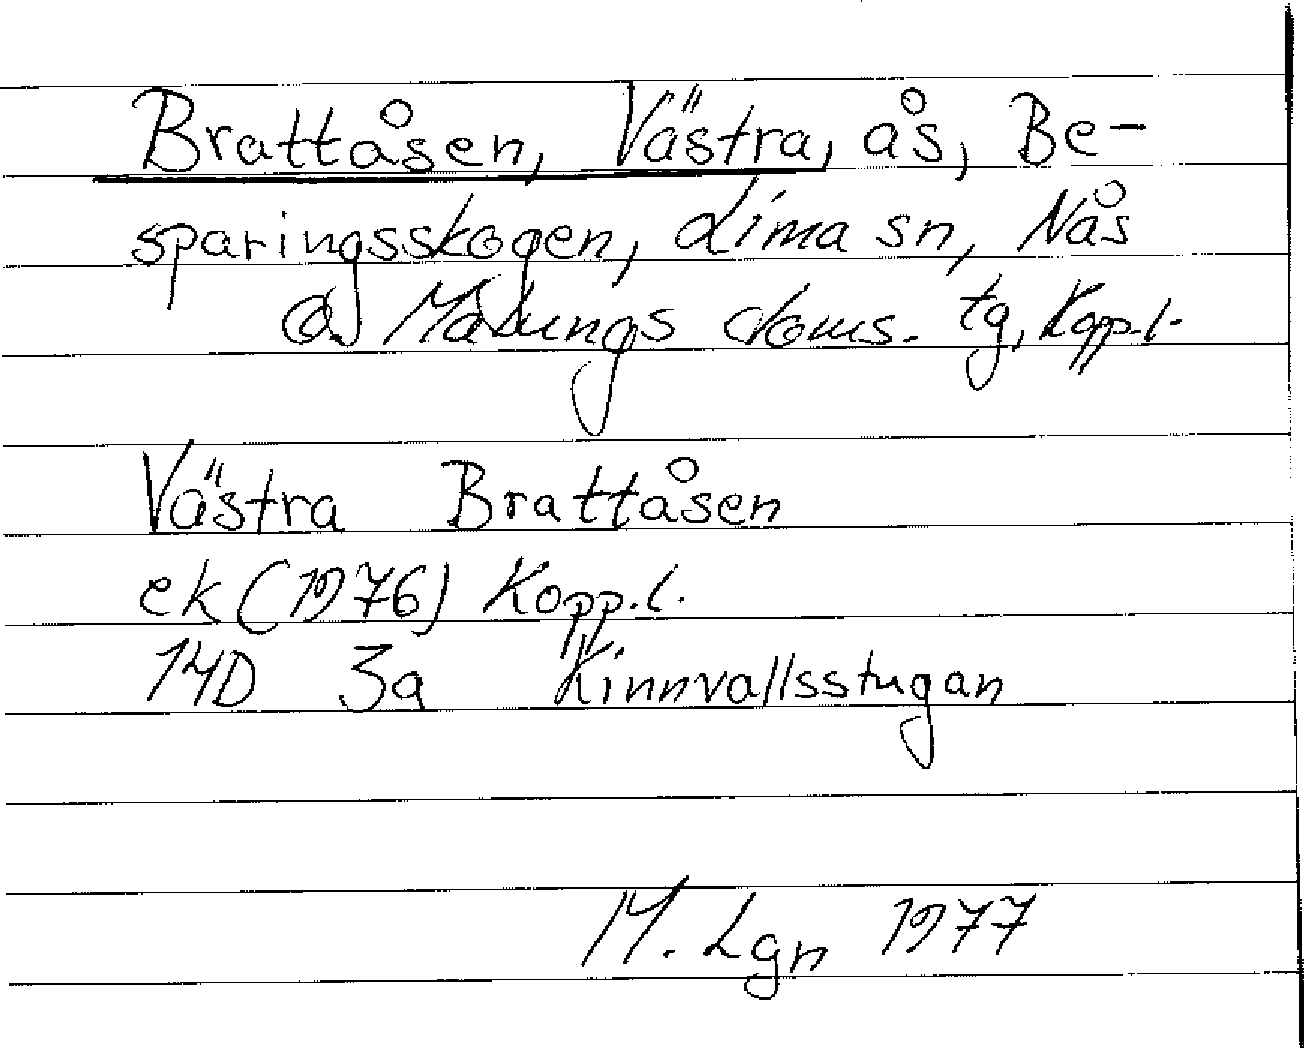 Brattåsen, Västra, ås, Be-
sparingsskogen, Lima sn, Nås
o. Malungs doms. tg, Kopp.l.
Västra Brattåsen
ek (1976) Kopp.l.
14D 3a Kinnvallsstugan
M. Lgn 1977